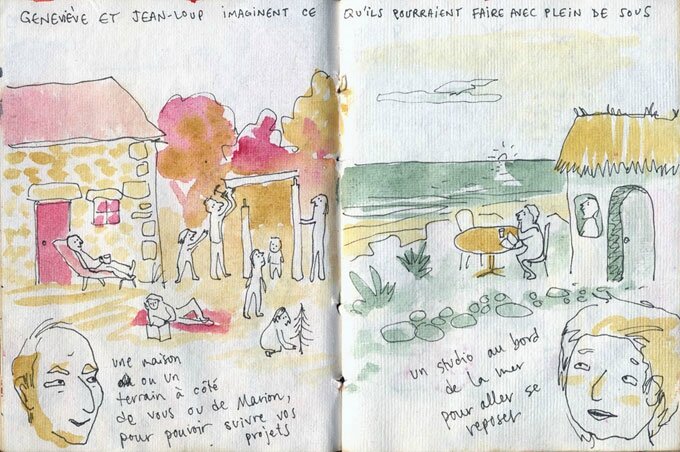 GENEVIÈVE ET JEAN-LOUP IMAGINENT CE QU'ILS POURRAIENT FAIRE AVEC PLEIN DE SOUS
une maison
ou un
terrain à côté
de vous ou de Marion,
pour pouvoir suivre vos
projets
un studio au bord
de la mer
pour aller se
reposer